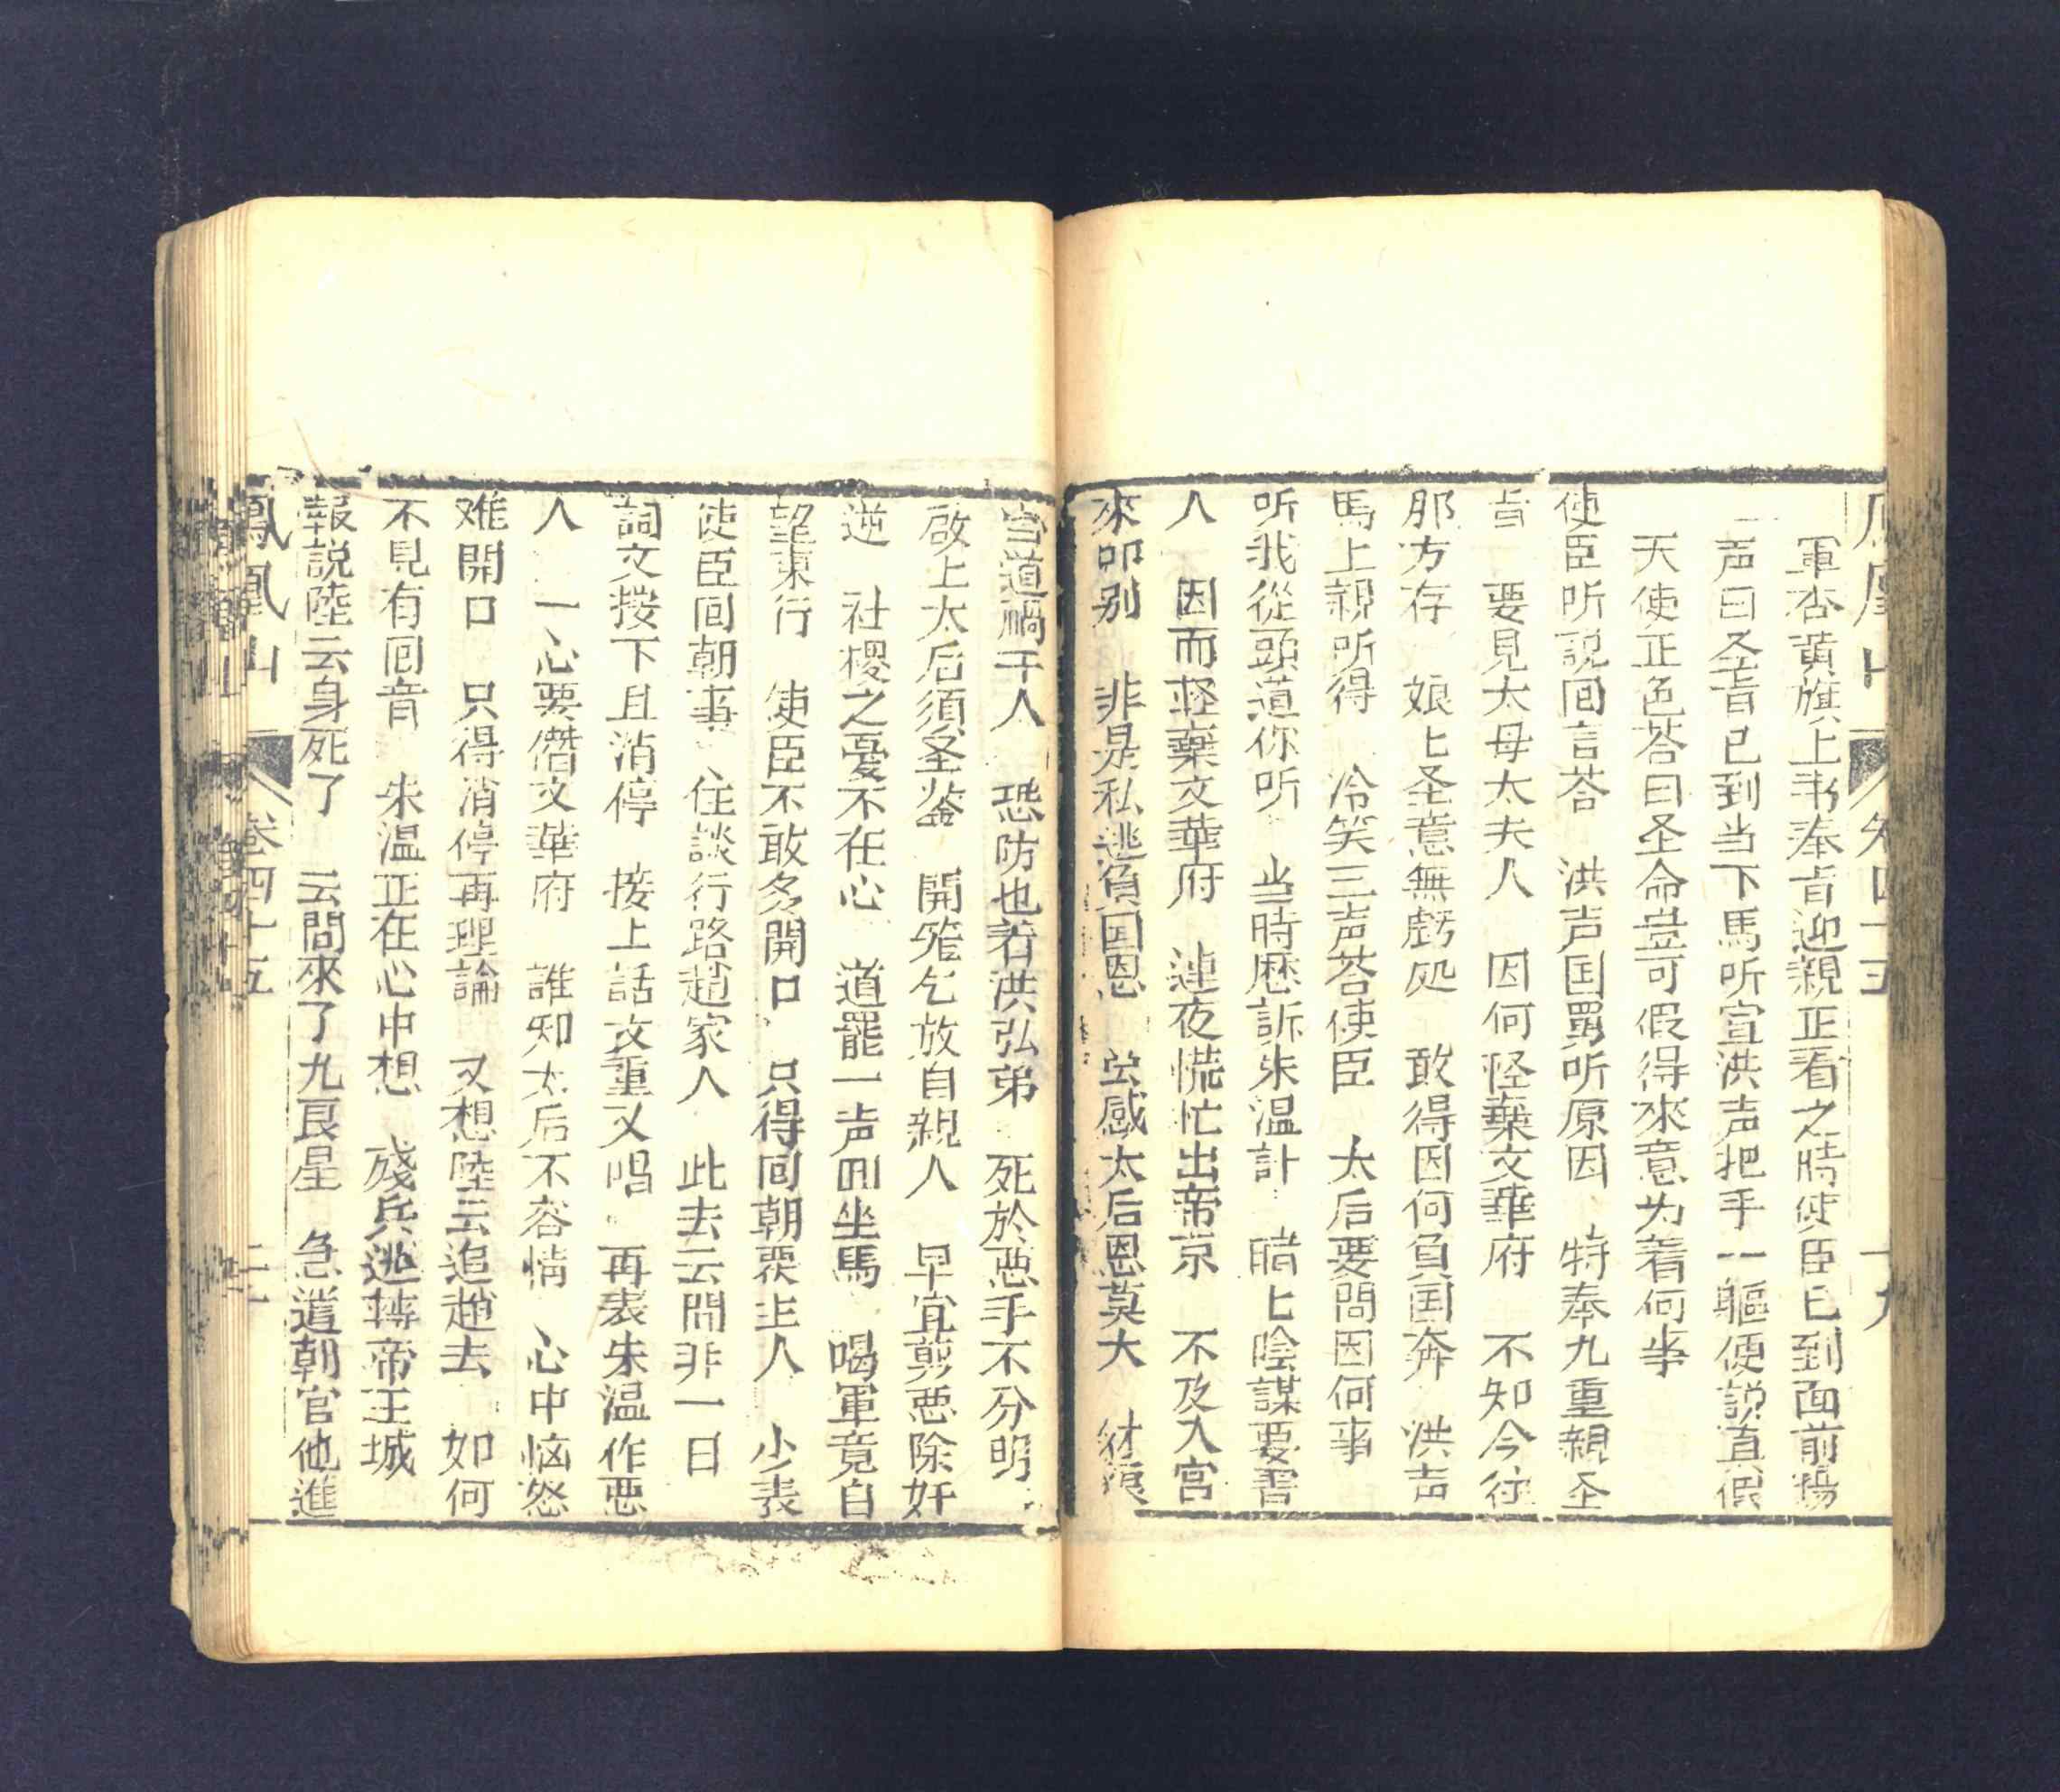 鳳凰山 卷四十五 十九
軍杏黃旗上书奉旨迎親正看之時使臣已到面前揚
一声曰圣旨已到当下馬听宣洪声把手一軀便説真假
天使正色荅曰圣命豈可假得來意为着何亊
使臣听説囬言荅 洪声国舅听原因 特奉九重親圣
旨 要見太母太夫人 因何怪棄文華府 不知今往
那方存 娘匕圣意無虧処 敢得因何負国奔 洪声
馬上親听得 冷笑三声荅使臣 太后要問因何事
听我從頭道你听 当時歷訴朱温計 暗匕陰謀要害
人 因而輕棄文華府 連夜慌忙出帝京 不及入宫
來叩别 非是私逃負国恩 感太后恩莫大
当道禍干人 恐防也著洪弘弟 死於惡手不分明
啟上太后須圣鉴 開篭乞放自親人 早宜剪惡除奸
逆 社稷之憂不在心 道罷一声囬坐馬 喝軍竟自
望東行 使臣不敢多開口 只得囬朝禀主人 少表
使臣囬朝事 住談行路趙家人 此去云間非一日
詞文撥下且消停 接上話文重又唱 再表朱温作惡
人 一心要僭文華府 誰知太后不容情 心中恼怒
难開口 只得消停再理論 又想陸云追趙去 如何
不見有囬音 朱温正在心中想 殘兵逃轉帝王城
報説陸云身死了 云間來了九艮星 急遣朝官他進
鳳凰山 卷四十五 二十